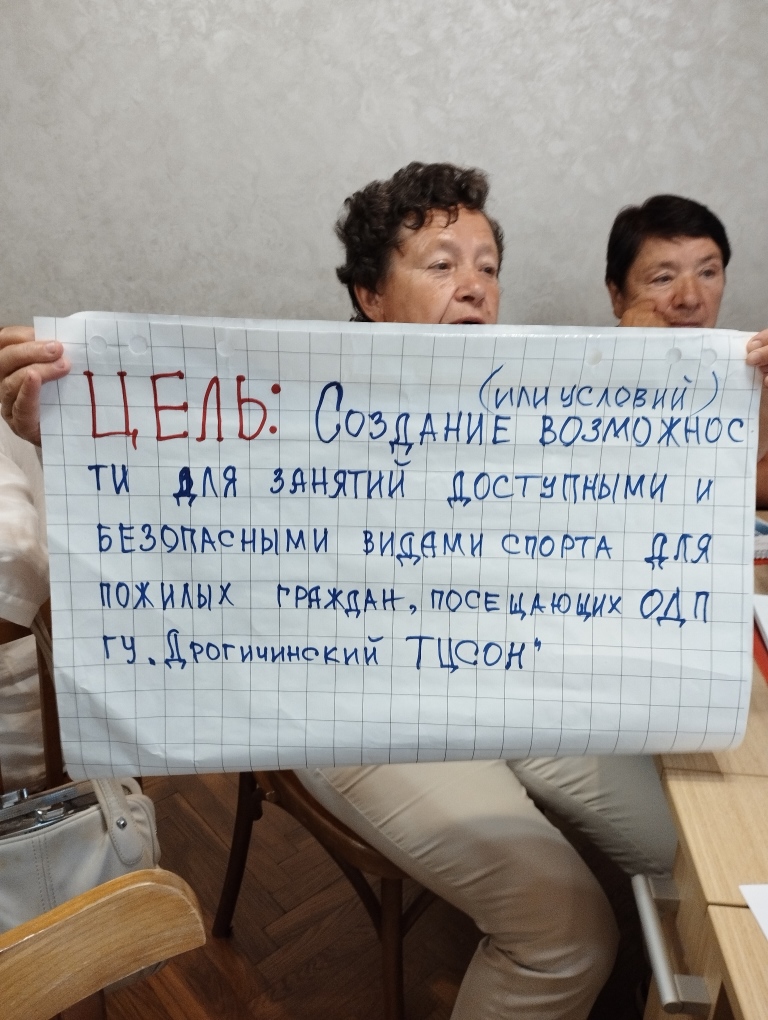 (или условий)
ЦЕЛЬ: Создание возможнос
ти для занятий доступными и
безопасными видами спорта для
пожилых граждан, посещающих ОДП
ГУ „Дрогичинский ТЦСОН“